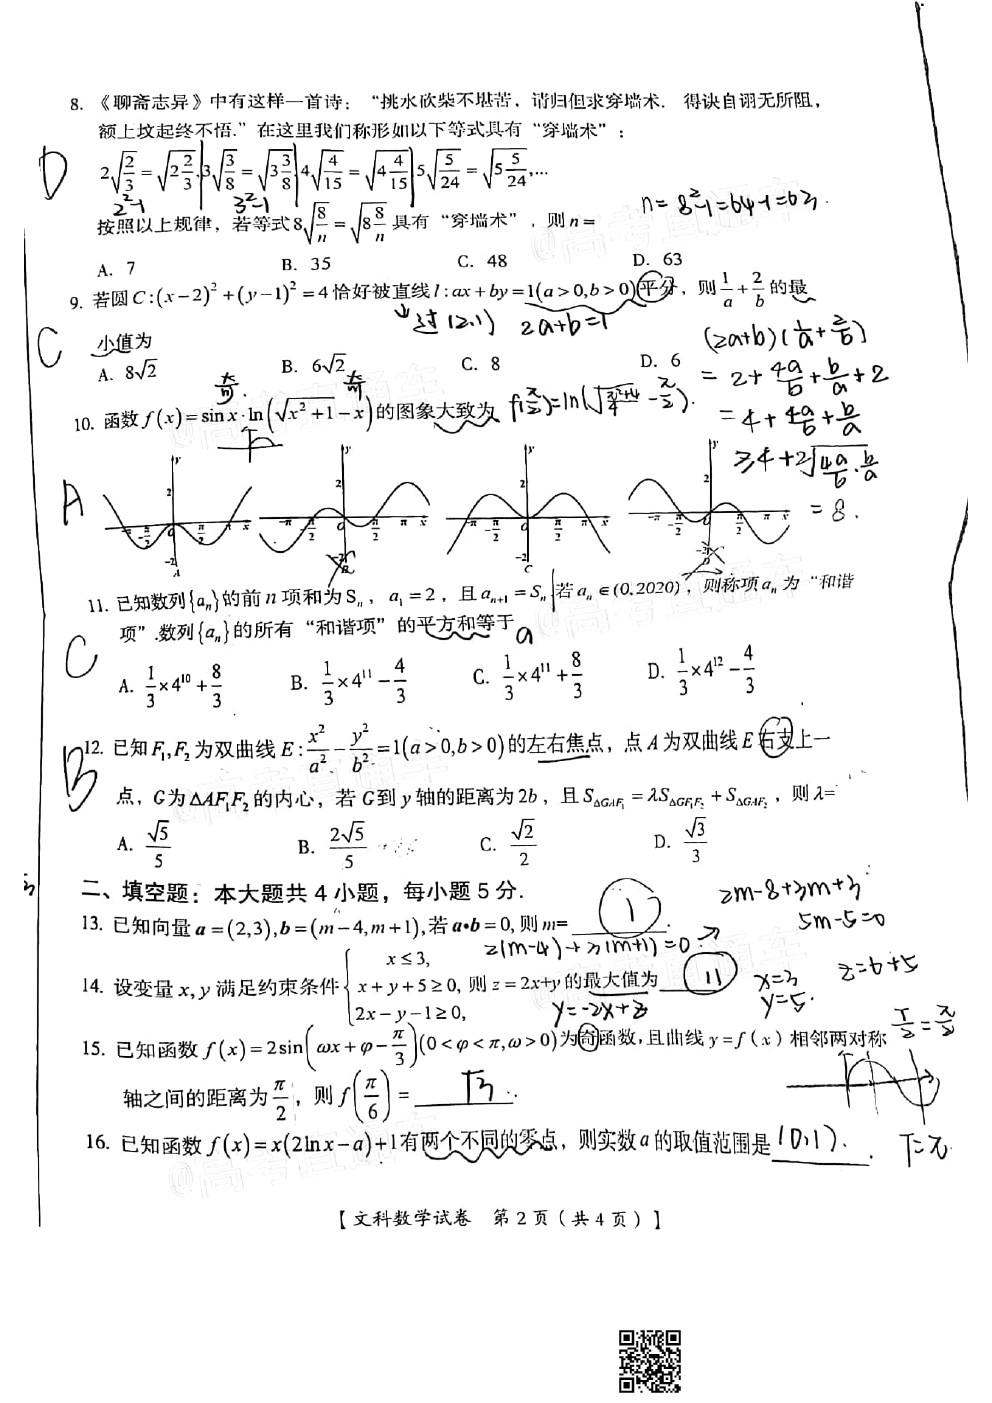 8. 《聊斋志异》中有这样一首诗：“挑水砍柴不堪苦，请归但求穿墙术. 得诀自诩无所阻，
额上坟起终不悟.”在这里我们称形如以下等式具有“穿墙术”：
D
2√(2/3)=√(2 2/3), 3√(3/8)=√(3 3/8), 4√(4/15)=√(4 4/15), 5√(5/24)=√(5 5/24),...
2²-1 3²-1
n=8²-1=64-1=63.
按照以上规律，若等式8√(8/n)=√(8 8/n)具有“穿墙术”，则n=
A. 7 B. 35 C. 48 D. 63
9. 若圆C:(x-2)²+(y-1)²=4恰好被直线l:ax+by=1(a>0,b>0)平分，则1/a+2/b的最
↓过(2,1) 2a+b=1
小值为
C
A. 8√2 B. 6√2 C. 8 D. 6
(2a+b)(1/a+2/b)
=2+4a/b+b/a+2
=4+4a/b+b/a
≥4+2√(4a/b·b/a)
=8.
10. 函数f(x)=sinx·ln(√(x²+1)-x)的图象大致为
奇 奇
f(π/2)=ln(√(π²/4+1)-π/2).
A
y 2 -π -π/2 O π/2 π x -2 A
y 2 -π -π/2 O π/2 π x -2 B
y 2 -π -π/2 O π/2 π x -2 C
y 2 -π -π/2 O π/2 π x -2 D
11. 已知数列{aₙ}的前n项和为Sₙ，a₁=2，且aₙ₊₁=Sₙ，若aₙ∈(0,2020)，则称项aₙ为“和谐
项”.数列{aₙ}的所有“和谐项”的平方和等于
C
A. 1/3×4¹⁰+8/3 B. 1/3×4¹¹-4/3 C. 1/3×4¹¹+8/3 D. 1/3×4¹²-4/3
12. 已知F₁,F₂为双曲线E:x²/a²-y²/b²=1(a>0,b>0)的左右焦点，点A为双曲线E右支上一
B
点，G为ΔAF₁F₂的内心，若G到y轴的距离为2b，且S_ΔGAF₁=λS_ΔGF₁F₂+S_ΔGAF₂，则λ=
A. √5/5 B. 2√5/5 C. √2/2 D. √3/3
二、填空题：本大题共4小题，每小题5分.
13. 已知向量a=(2,3),b=(m-4,m+1),若a•b=0,则m= 1 .
2(m-4)+3(m+1)=0.→
2m-8+3m+3
5m-5=0
14. 设变量x,y满足约束条件{x≤3, x+y+5≥0, 2x-y-1≥0, 则z=2x+y的最大值为 11
y=-2x+z
x=3
y=5.
z=6+5
15. 已知函数f(x)=2sin(ωx+φ-π/3)(0<φ<π,ω>0)为奇函数,且曲线y=f(x)相邻两对称
T/2=π/2
轴之间的距离为π/2，则f(π/6)= √3 .
T=π
16. 已知函数f(x)=x(2lnx-a)+1有两个不同的零点，则实数a的取值范围是 (0,1).
【文科数学试卷 第2页(共4页)】